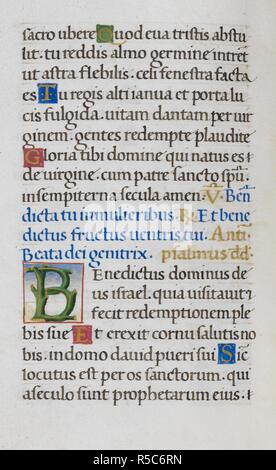 sacro ubere Quod eua tristis abstu
lit. tu reddis almo germine intrẽt
ut astra flebiles. celi fenestra facta
es Tu regis alti ianua et porta lu
cis fulgida. uitam dantam per uir
ginem. gentes redempte plaudite
Gloria tibi domine qui natus es
de virgine. cum patre sancto spũ.
in sempiterna secula amen. V. Ben̄
dicta tu in mulieribus. R. Et bene
dictus fructus uentris tui. Antĩ.
Beata dei genitrix. psalmus dd.
Benedictus dominus de
us israel. quia uisitauit
fecit redemptionem ple
bis sue Et erexit cornu salutis no
bis. in domo dauid pueri sui Sic
locutus est per os sanctorum. qui
a seculo sunt prophetarum eius.
alamy
Image ID: R5C6RN
www.alamy.com